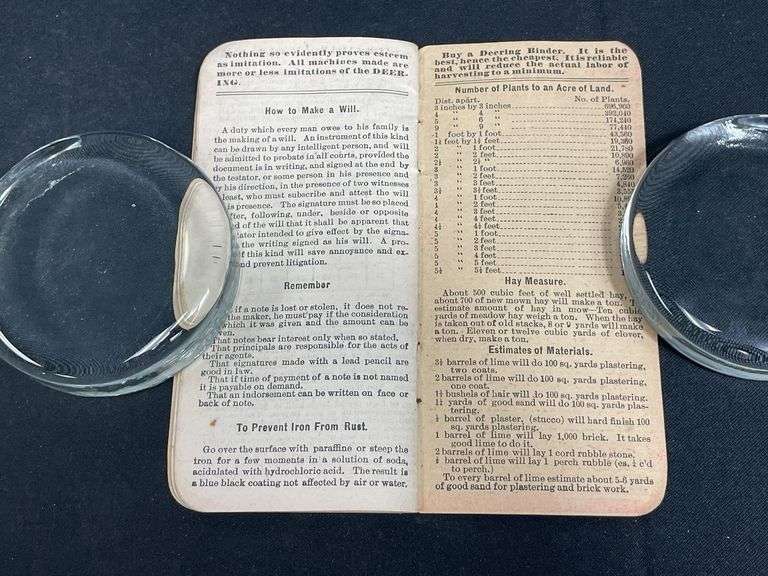 Nothing so evidently proves esteem
as imitation. All machines made are
more or less imitations of the DEER-
ING.
How to Make a Will.
A duty which every man owes to his family is
the making of a will. An instrument of this kind
can be drawn by any intelligent person, and will
be admitted to probate in all courts, provided the
document is in writing, and signed at the end by
the testator, or some person in his presence and
by his direction, in the presence of two witnesses
least, who must subscribe and attest the will
is presence. The signature must be so placed
fter, following, under, beside or opposite
d of the will that it shall be apparent that
tator intended to give effect by the signa-
the writing signed as his will. A pro-
f this kind will save annoyance and ex-
nd prevent litigation.
Remember
if a note is lost or stolen, it does not re-
the maker, he must pay if the consideration
which it was given and the amount can be
en.
That notes bear interest only when so stated.
That principals are responsible for the acts of
their agents.
That signatures made with a lead pencil are
good in law.
That if time of payment of a note is not named
it is payable on demand.
That an endorsement can be written on face or
back of note.
To Prevent Iron From Rust.
Go over the surface with paraffine or steep the
iron for a few moments in a solution of soda,
acidulated with hydrochloric acid. The result is
a blue black coating not affected by air or water.
Buy a Deering Binder. It is the
best, hence the cheapest. It is reliable
and will reduce the actual labor of
harvesting to a minimum.
Number of Plants to an Acre of Land.
Dist. apart. No. of Plants.
3 inches by 3 inches 696,960
4 " 4 " 392,040
5 " 6 " 174,240
9 " 9 " 77,440
1 foot by 1 foot 43,560
1½ feet by 1½ feet 19,360
2 " 1 foot 21,780
2 " 2 feet 10,890
2½ " 2½ " 6,960
3 " 1 foot 14,520
3 " 2 feet 7,260
3 " 3 feet 4,840
3½ " 3½ feet 3,55
4 " 1 foot 10,8
4 " 2 feet
4 " 3 feet
4 " 4 feet
4½ " 4½ feet
5 " 1 foot
5 " 2 feet
5 " 3 feet
5 " 4 feet
5 " 5 feet
5½ " 5½ feet
Hay Measure.
About 500 cubic feet of well settled hay,
about 700 of new mown hay will make a ton. T
estimate amount of hay in mow—Ten cubic
yards of meadow hay weigh a ton. When the hay
is taken out of old stacks, 8 or 9 yards will make
a ton. Eleven or twelve cubic yards of clover,
when dry, make a ton.
Estimates of Materials.
3½ barrels of lime will do 100 sq. yards plastering,
two coats.
2 barrels of lime will do 100 sq. yards plastering,
one coat.
1½ bushels of hair will do 100 sq. yards plastering.
1¼ yards of good sand will do 100 sq. yards plas-
tering.
barrel of plaster, (stucco) will hard finish 100
sq. yards plastering.
1 barrel of lime will lay 1,000 brick. It takes
good lime to do it.
2 barrels of lime will lay 1 cord rubble stone.
barrel of lime will lay 1 perch rubble (es. ¼ c'd
to perch.)
To every barrel of lime estimate about 5-8 yards
of good sand for plastering and brick work.